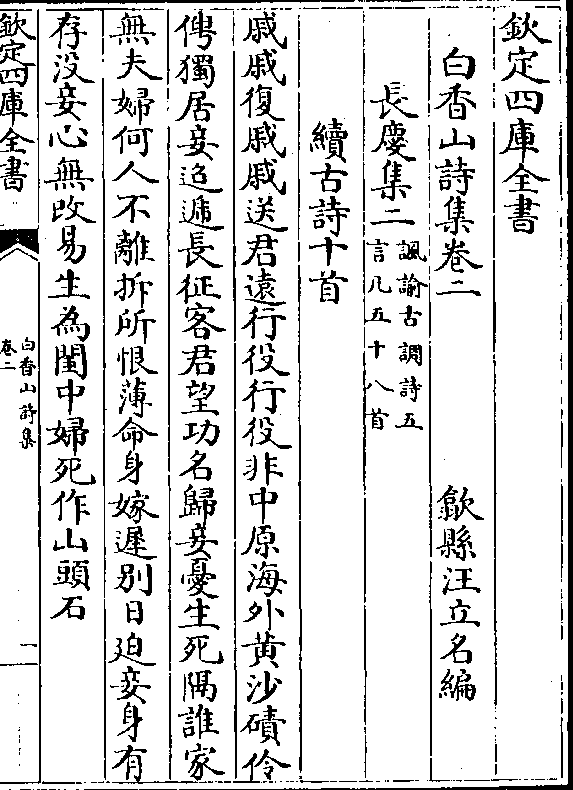 欽定四庫全書
白香山詩集卷二
歙縣汪立名編
長慶集二
諷諭古調詩五
言凡五十八首
續古詩十首
戚戚復戚戚送君遠行役行役非中原海外黄沙磧伶
俜獨居妾迢遞長征客君望功名歸妾憂生死隔誰家
無夫婦何人不離拆所恨薄命身嫁遲別日迫妾身有
存没妾心無改易生為閨中婦死作山頭石
欽定四庫全書
白香山詩集
卷二
一